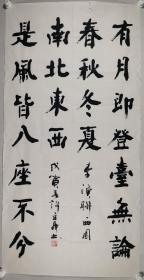 有月即登臺無論
春秋冬夏
李漁聯
是風皆入座不分
南北東西
戊寅